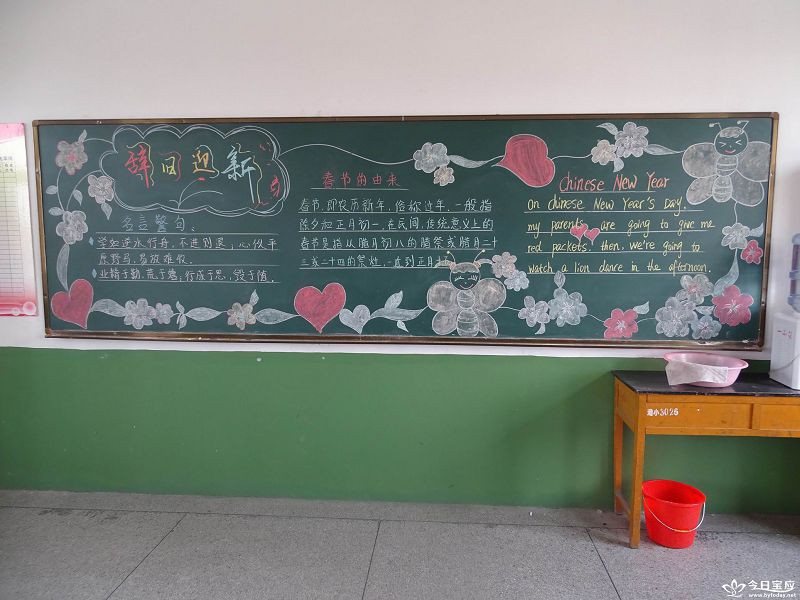 辞旧迎新
名言警句:
学如逆水行舟,不进则退,心似平
原野马,易放难收。
业精于勤,荒于嬉,行成于思,毁于随。
春节的由来
春节,即农历新年,俗称过年,一般指
除夕和正月初一,在民间,传统意义上的
春节是指从腊月初八的腊祭或腊月二十
三或二十四的祭灶,一直到正月十五
Chinese New Year
On chinese New Year's Day,
my parents are going to give me
red packets. then, we're going to
watch a lion dance in the afternoon.
港小3026
今日宝应
www.bytoday.net